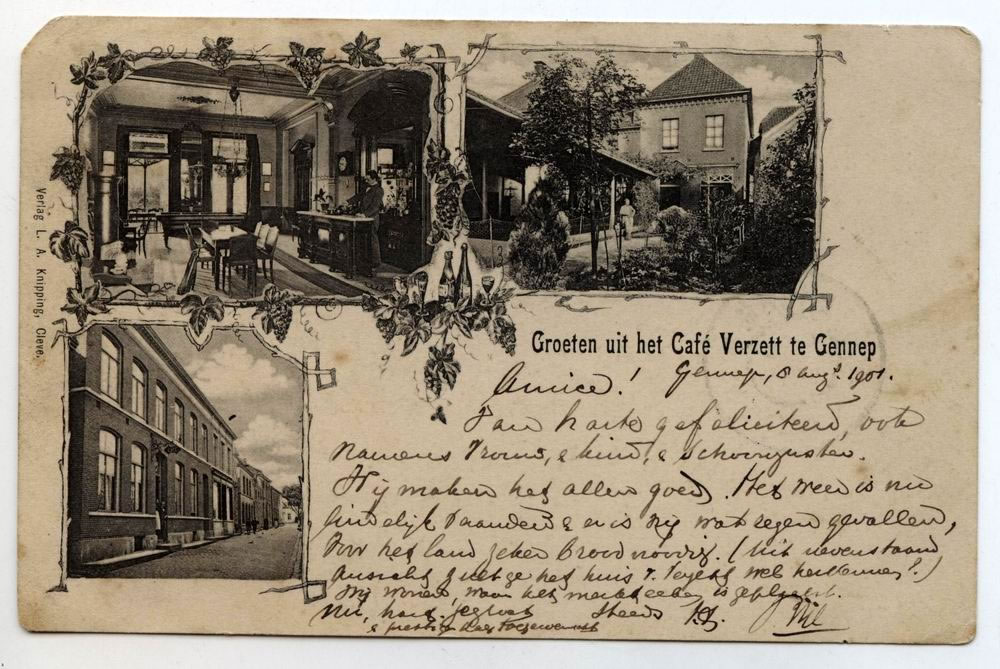 Verlag L. A. Knipping, Cleve.
Groeten uit het Café Verzett te Gennep
Amice! Gennep, 8 augs. 1901.
Van harte gefeliciteerd, ook
namens vrouw, & kind, & schoonzuster.
Wij maken het allen goed. Het weer is nu
eindelijk veranderd & er is wat regen gevallen,
Voor het land zeker broodnoodig. (Uit nevenstaand
Aanzicht zult ge het huis v. wel herkennen?)
Wij wonen, waar het is geplaatst.
Nu, hart. gegroet Steeds